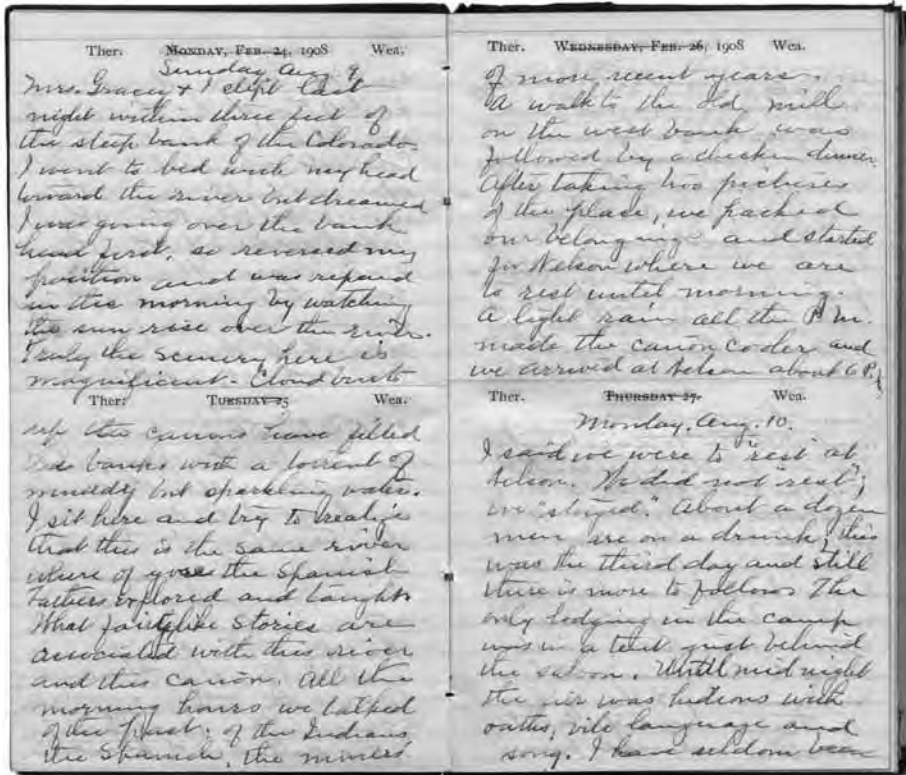 Ther. MONDAY, FEB. 24, 1908 Wea.
Sunday Aug 9,
Mrs. Gracey & I slept last
night within three feet of
the steep bank of the Colorado.
I went to bed with my head
toward the river but dreamed
I was going over the bank
head first, so reversed my
position and was repaid
in the morning by watching
the sun rise over the river.
Truly the scenery here is
magnificent - Cloud bursts
Ther. TUESDAY 25 Wea.
up the canons have filled
banks with a torrent of
muddy but sparkling water.
I sit here and try to realize
that this is the same river
where of the Spanish
Fathers explored and taught.
What stories are
associated with this river
and this canon. All the
morning hours we talked
of the past; of the Indians
the Spanish, the miners
Ther. WEDNESDAY, FEB. 26, 1908 Wea.
of more recent years.
A walk to the old mill
on the west bank was
followed by a chicken dinner.
After taking two pictures
of the place, we packed
our belongings and started
for Nelson where we are
to rest until morning.
A light rain all the P.M.
made the canon cooler and
we arrived at Nelson about 6 P.
Ther. THURSDAY 27. Wea.
Monday, Aug. 10.
I said we were to "rest" at
Nelson. We did not "rest";
we "stayed." About a dozen
men are on a drunk; this
was the third day and still
there is more to follow. The
only lodging in the camp
was in a tent just behind
the saloon. Until midnight
the air was hideous with
oaths, vile language and
song. I have seldom been